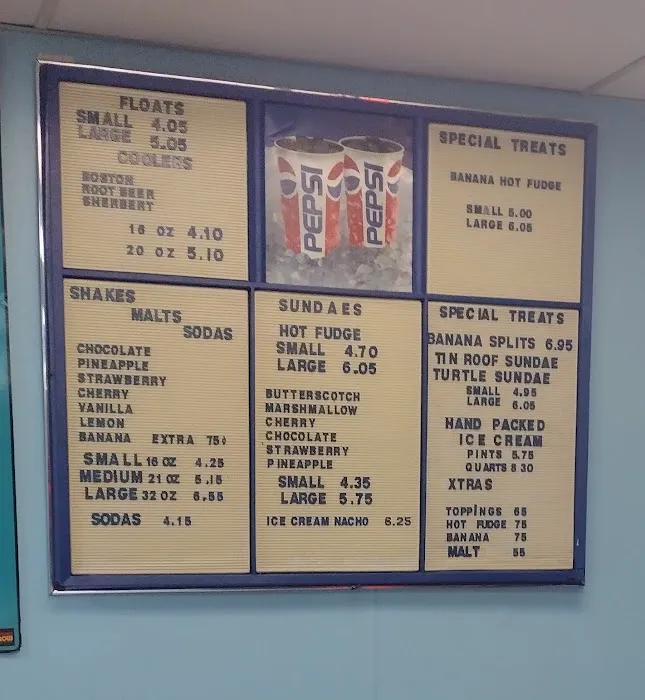 FLOATS
SMALL 4.05
LARGE 5.05
COOLERS
BOSTON
ROOT BEER
SHERBERT
16 OZ 4.10
20 OZ 5.10
PEPSI
PEPSI
SPECIAL TREATS
BANANA HOT FUDGE
SMALL 5.00
LARGE 6.05
SHAKES
MALTS
SODAS
CHOCOLATE
PINEAPPLE
STRAWBERRY
CHERRY
VANILLA
LEMON
BANANA EXTRA 75¢
SMALL 16 OZ 4.25
MEDIUM 21 OZ 5.15
LARGE 32 OZ 6.55
SODAS 4.15
SUNDAES
HOT FUDGE
SMALL 4.70
LARGE 6.05
BUTTERSCOTCH
MARSHMALLOW
CHERRY
CHOCOLATE
STRAWBERRY
PINEAPPLE
SMALL 4.35
LARGE 5.75
ICE CREAM NACHO 6.25
SPECIAL TREATS
BANANA SPLITS 6.95
TIN ROOF SUNDAE
TURTLE SUNDAE
SMALL 4.95
LARGE 6.05
HAND PACKED
ICE CREAM
PINTS 5.75
QUARTS 8 30
XTRAS
TOPPINGS 65
HOT FUDGE 75
BANANA 75
MALT 55